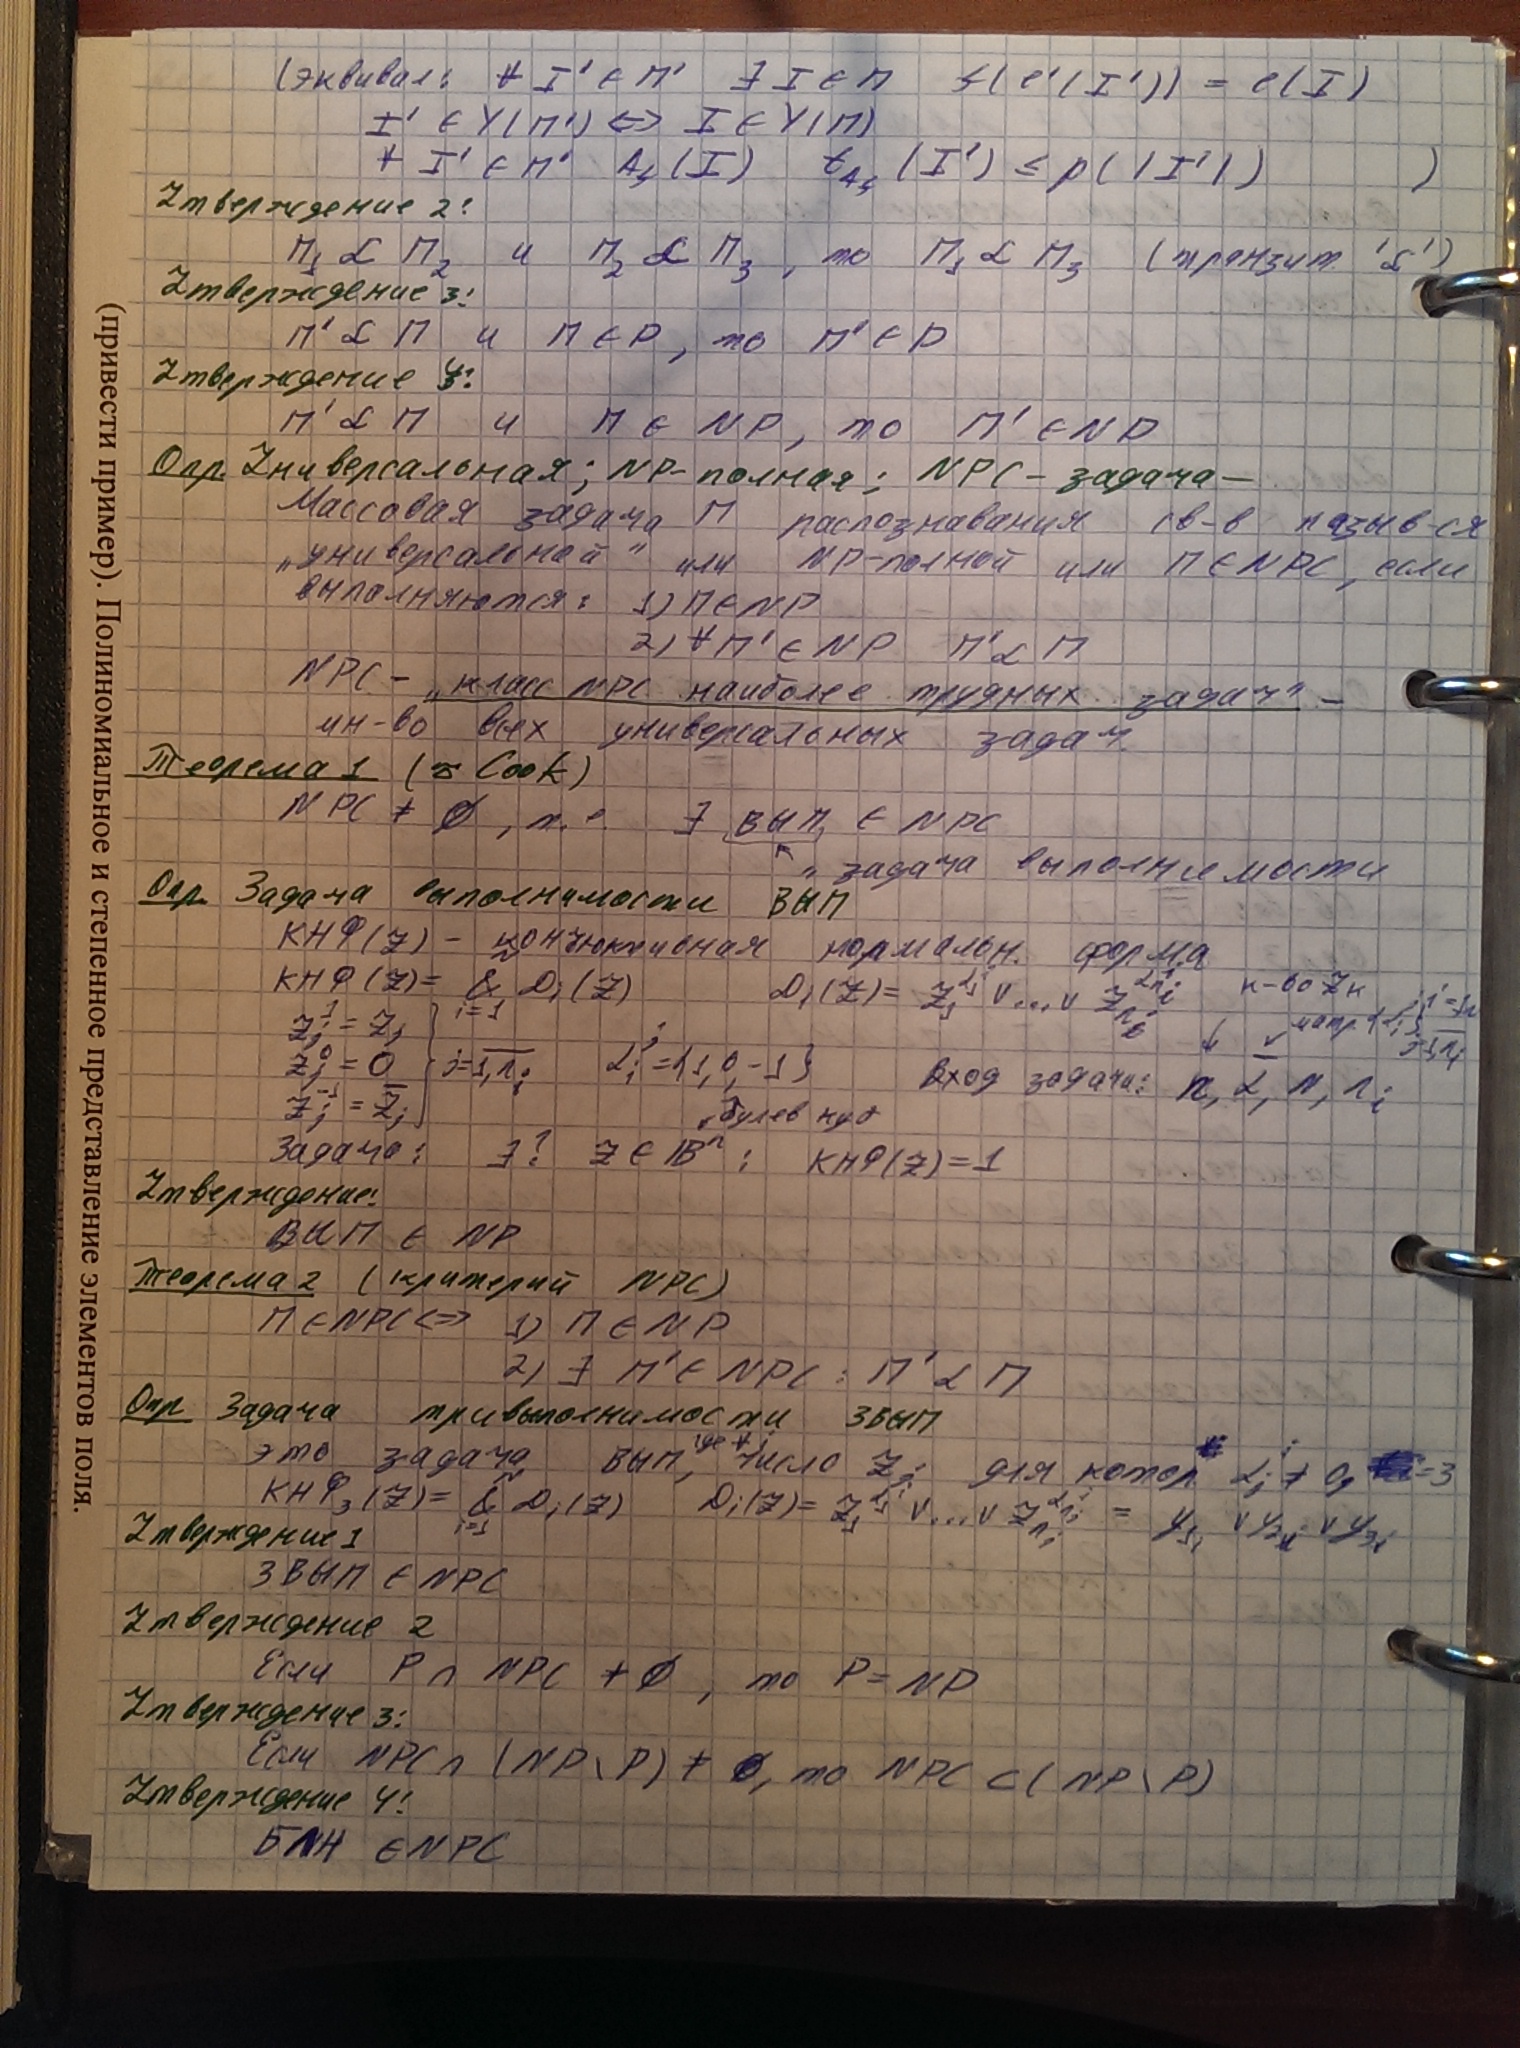 (эквивал: ∀ I' ∈ П' ∃ I ∈ П f(e'(I')) = e(I)
I' ∈ Y(П') ⇔ I ∈ Y(П)
∀ I' ∈ П' A_f (I) t_{A_f} (I') ≤ p(|I'|) )
Утверждение 2:
П₁ α П₂ и П₂ α П₃, то П₁ α П₃ (транзит. 'α')
Утверждение 3:
П' α П и П ∈ P, то П' ∈ P
Утверждение 4:
П' α П и П ∈ NP, то П' ∈ NP
Опр. Универсальная; NP-полная; NPC-задача —
Массовая задача П распознавания св-в назыв-ся
„универсальной" или NP-полной или П ∈ NPC, если
выполняются: 1) П ∈ NP
2) ∀ П' ∈ NP П' α П
NPC - „класс NPC наиболее трудных задач" -
мн-во всех универсальных задач
Теорема 1 (Cook)
NPC ≠ ∅, т.е. ∃ ВЫП ∈ NPC
„задача выполнимости
Опр. Задача выполнимости ВЫП
КНФ(z) - конъюктивная нормальн. форма
КНФ(z) = & Dᵢ(z) Dᵢ(z) = z₁^{α₁ⁱ} ∨ ... ∨ z_{nᵢ}^{α_{nᵢ}ⁱ} к-во zₖ
i=1
zⱼ¹ = zⱼ
zⱼ⁰ = 0 j=1,nᵢ αⱼⁱ = {1, 0, -1} Вход задачи: n, α, N, nᵢ
zⱼ⁻¹ = z̄ⱼ
булев куб
Задача: ∃? z ∈ Bⁿ : КНФ(z) = 1
Утверждение:
ВЫП ∈ NP
Теорема 2 (критерий NPC)
П ∈ NPC ⇔ 1) П ∈ NP
2) ∃ П' ∈ NPC : П' α П
Опр Задача 3выполнимости 3ВЫП
это задача ВЫП, где ∀ i число zⱼ для котор. αⱼⁱ ≠ 0, =3
КНФ₃(z) = & Dᵢ(z) Dᵢ(z) = z₁^{α₁ⁱ} ∨ ... ∨ z_{nᵢ}^{α_{nᵢ}ⁱ} = y₁ᵢ ∨ y₂ᵢ ∨ y₃ᵢ
i=1
Утверждение 1
3ВЫП ∈ NPC
Утверждение 2
Если P ∩ NPC ≠ ∅, то P = NP
Утверждение 3:
Если NPC ∩ (NP \ P) ≠ ∅, то NPC ⊂ (NP \ P)
Утверждение 4:
БЛН ∈ NPC
(привести пример). Полиномиальное и степенное представление элементов поля.